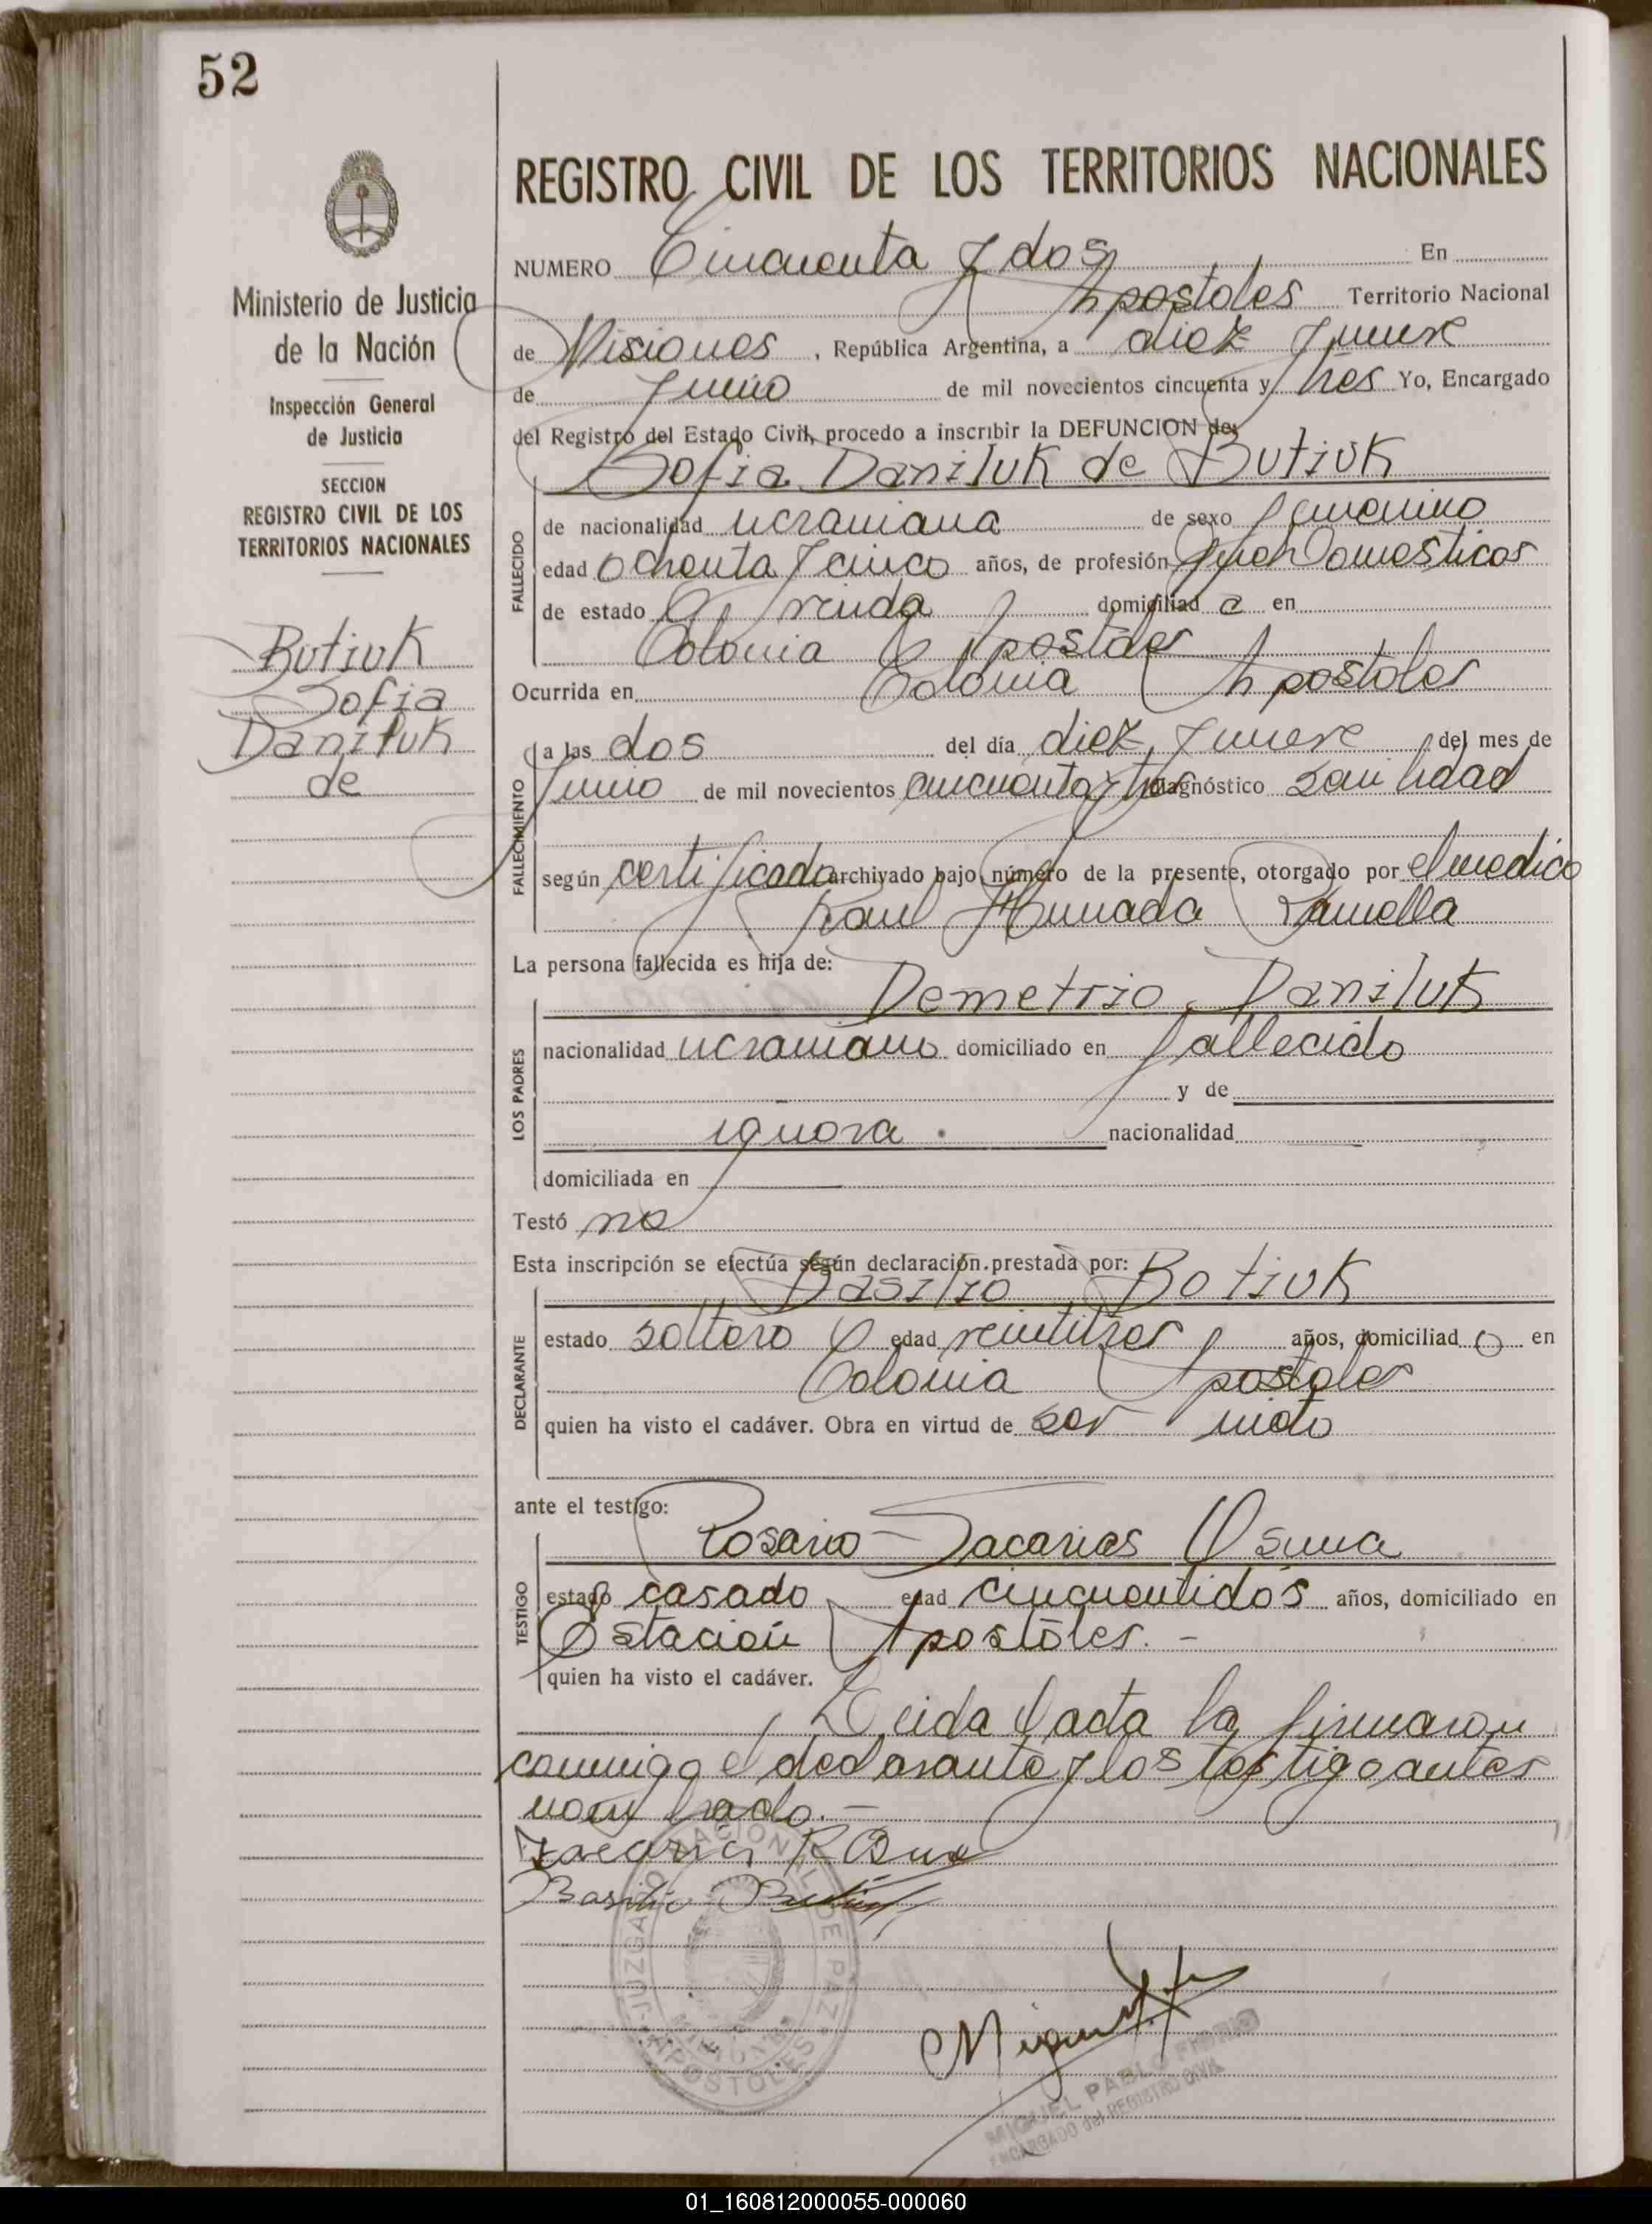 52
REGISTRO CIVIL DE LOS TERRITORIOS NACIONALES
NUMERO Cincuenta y dos En
Apostoles Territorio Nacional
de Misiones, República Argentina, a diez y nueve
de Junio de mil novecientos cincuenta y tres Yo, Encargado
del Registro del Estado Civil, procedo a inscribir la DEFUNCION de:
Sofia Daniluk de Butiuk
FALLECIDO
de nacionalidad ucraniana de sexo femenino
edad ochenta y cinco años, de profesión Domesticos
de estado viuda domiciliad a en
Colonia Apostoles
Ocurrida en Colonia Apostoles
FALLECIMIENTO
a las dos del día diez y nueve del mes de
Junio de mil novecientos cincuenta y tres diagnóstico senilidad
según certificado archivado bajo número de la presente, otorgado por el medico
Raul Ramella
La persona fallecida es hija de:
LOS PADRES
Demetrio Daniluk
nacionalidad ucraniano domiciliado en fallecido
y de
ignora. nacionalidad
domiciliada en
Testó no
Esta inscripción se efectúa según declaración prestada por:
DECLARANTE
Basilio Botiuk
estado soltero edad veintitres años, domiciliad o en
Colonia Apostoles
quien ha visto el cadáver. Obra en virtud de ser nieto
ante el testigo:
TESTIGO
Rosario Sacarias Osuna
estado casado edad cincuentidos años, domiciliado en
Estación Apostoles. -
quien ha visto el cadáver.
Leida el acta la firmaron
conmigo el declarante y los testigo antes
nombrado. -
Zacarias R Osuna
Basilio Butiuk
JUZGADO NACIONAL DE PAZ
MISIONES
APOSTOLES
MIGUEL PABLO
ENCARGADO del REGISTRO CIVIL
Ministerio de Justicia
de la Nación
Inspección General
de Justicia
SECCION
REGISTRO CIVIL DE LOS
TERRITORIOS NACIONALES
Butiuk
Sofia
Daniluk
de
01_160812000055-000060